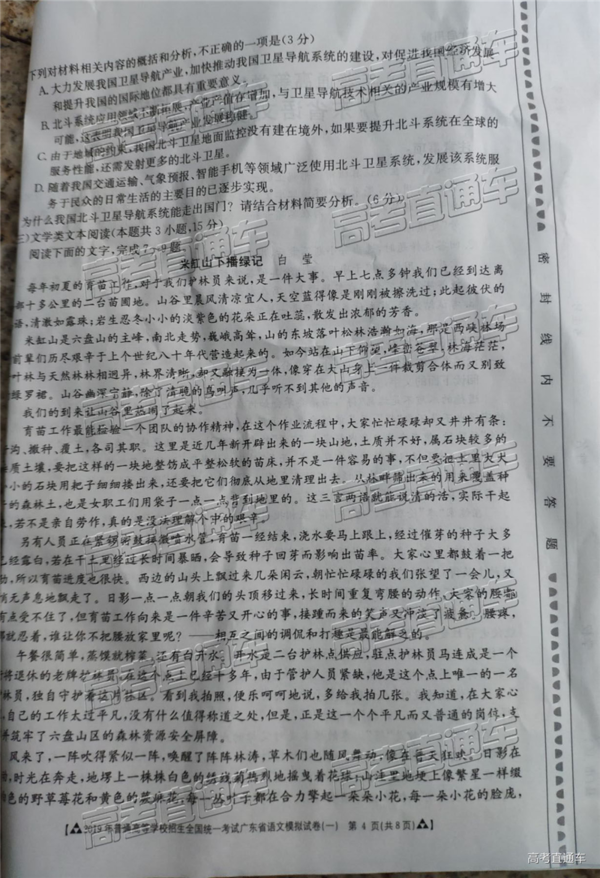 下列对材料相关内容的概括和分析,不正确的一项是(3分)
A.大力发展我国卫星导航产业,加快推动我国卫星导航系统的建设,对促进我国经济发展
和提升我国的国际地位都具有重要意义。
B.北斗系统应用领域不断拓展,产业产值在增加,与卫星导航技术相关的产业规模有增大
可能,这表明我国卫星导航产业发展稳健。
C.由于地域的约束,我国北斗卫星地面监控没有建在境外,如果要提升北斗系统在全球的
服务性能,还需发射更多的北斗卫星。
D.随着我国交通运输、气象预报、智能手机等领域广泛使用北斗卫星系统,发展该系统服
务于民众的日常生活的主要目的已逐步实现。
为什么我国北斗卫星导航系统能走出国门?请结合材料简要分析。(6分)
)文学类文本阅读(本题共3小题,15分)
阅读下面的文字,完成7~9题。
米缸山下播绿记 白莹
每年初夏的育苗工作,对于我们护林员来说,是一件大事。早上七点多钟我们已经到达离
十多公里的二台苗圃地。山谷里晨风清凉宜人,天空蓝得像是刚刚被擦洗过;此起彼伏的
语,清澈如露珠;岩生忍冬小小的淡紫色的花朵正在吐蕊,散发出浓郁的芳香。
米缸山是六盘山的主峰,南北走势,巍峨高耸,山的东坡落叶松林浩瀚如海,那是西峡林场
前辈们历尽艰辛于上个世纪八十年代营造起来的。如今站在山下仰望,峰峦苍翠,林海茫茫,
叶林与天然林林相迥异,林界清晰,却又融接为一体,像穿在大山身上一件裁剪合体而又别致
罗裙。山谷幽深宁静,除了清脆的鸟叫声,几乎听不到其他的声音。
我们的到来让山谷里热闹了起来。
育苗工作最能检验一个团队的协作精神,在这个作业流程中,大家忙忙碌碌却又井井有条:
沟、撒种、覆土,各司其职。这里是近几年新开辟出来的一块山地,土质并不好,属石块较多的
质土壤,要把这样的一块地整饬成平整松软的苗床,并不是一件容易的事,不但要把土里大大
小的石块用耙子细细搂出来,还要把它们彻底从地里清理出去。从林畔筛出来的用来覆盖种
的森林土,也是女职工们用袋子一点一点背到地里的。这三言两语就能说清的活,实际干起
,若不是亲自劳作,真的是没法理解个中的艰辛。
另有人员正在竖钢河鼓接微喷水管。育苗一经结束,浇水要马上跟上,经过催芽的种子大多
已经露白,若在干土里经过长时间暴晒,会导致种子回芽而影响出苗率。大家心里都鼓着一把
,所以育苗进度也很快。西边的山头上飘过来几朵闲云,朝忙忙碌碌的我们张望了一会儿,又
悄无声息地飘走了。日影一点一点朝我们的头顶移过来,长时间重复弯腰的动作,大家的腰都
有点受不住了,但育苗工作向来是一件辛苦又开心的事,接踵而来的笑声又冲淡了疲惫。腰疼,
就忍着,谁让你不把腰放家里呢?——相互之间的调侃和打趣是最能解乏的。
午餐很简单,蒸馍就榨菜,还有白开水。开水是二台护林点供应,驻点护林员马连成是一个
将退休的老牌护林员,在这个点上已经十多年,由于管护人员紧缺,他是这个点上唯一的一名
林员,独自守护着这片林区。看到我拍照,便乐呵呵地说,多给我拍几张。我知道,在大家心
自己的工作太过平凡,没有什么值得称道之处,但是,正是这一个个平凡而又普通的岗位,支
筑牢了六盘山区的森林资源安全屏障。
风来了,一阵吹得紧似一阵,唤醒了阵阵林涛,草木们也随风舞动,像在普天狂欢。日影在
,时光在奔走,地塄上一株株白色的
色的野草莓花和黄色的委陵花,每一叶子都在合力擎起一朵朵小花,每一朵小花的脸庞,
【2019年普通高等学校招生全国统一考试广东省语文模拟试卷(一) 第4页(共8页)】
密封线内不要答题
高考直通车